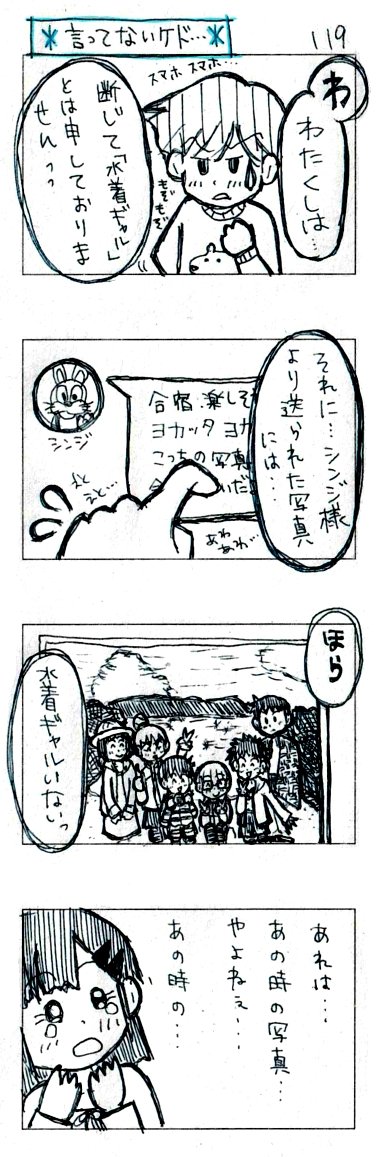 ＊言ってないケド…＊
119
わ
わたくしは…
スマホスマホ…
もぞもぞ
断じて「水着ギャル」
とは申しておりま
せんっっ
それに…シンジ様
より送られた写真
には…
シンジ
合宿楽しそ
ヨカッタヨナ
こっちの写真
あわあわ…
ほら
水着ギャルいないっ
あれは…
あの時の写真…
やよねぇ…
あの時の…